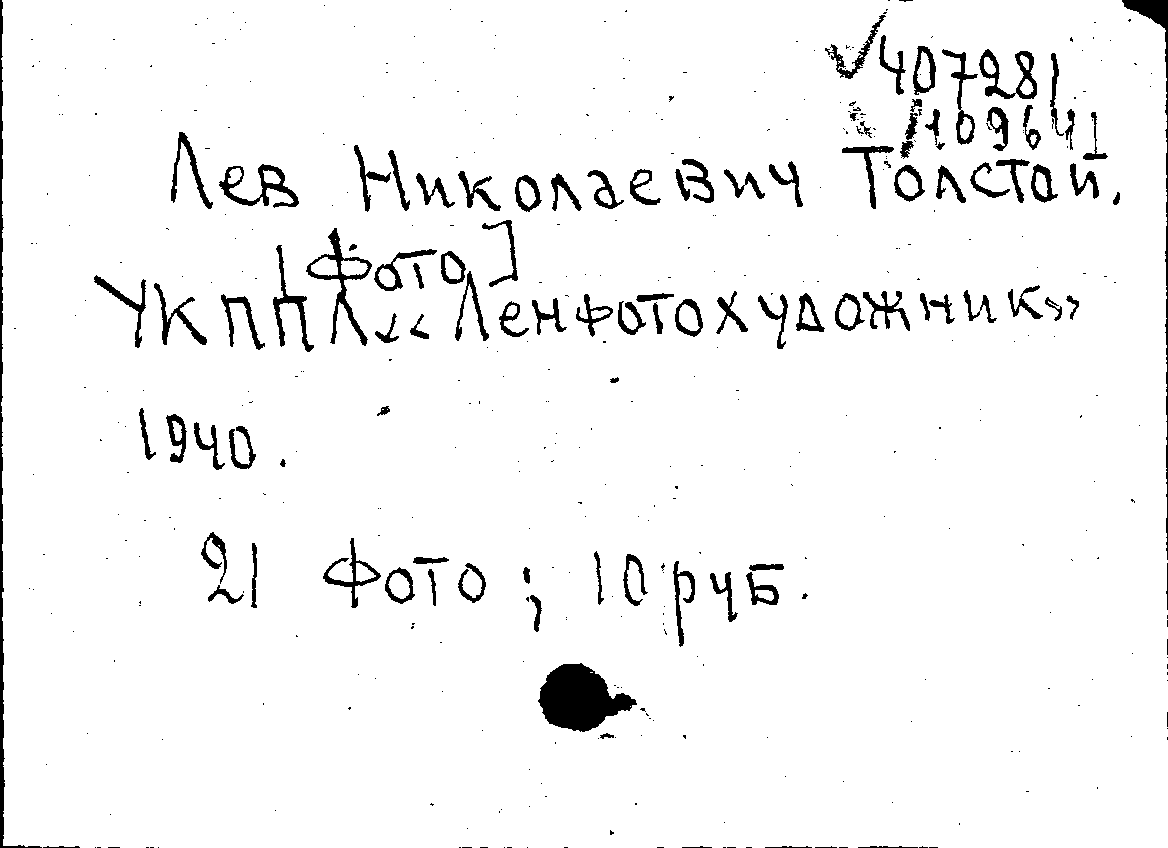 407281
109641
Лев Николаевич Толстой.
[Фото]
УКППЛ «Ленфотохудожник»
1940.
21 фото; 10 руб.